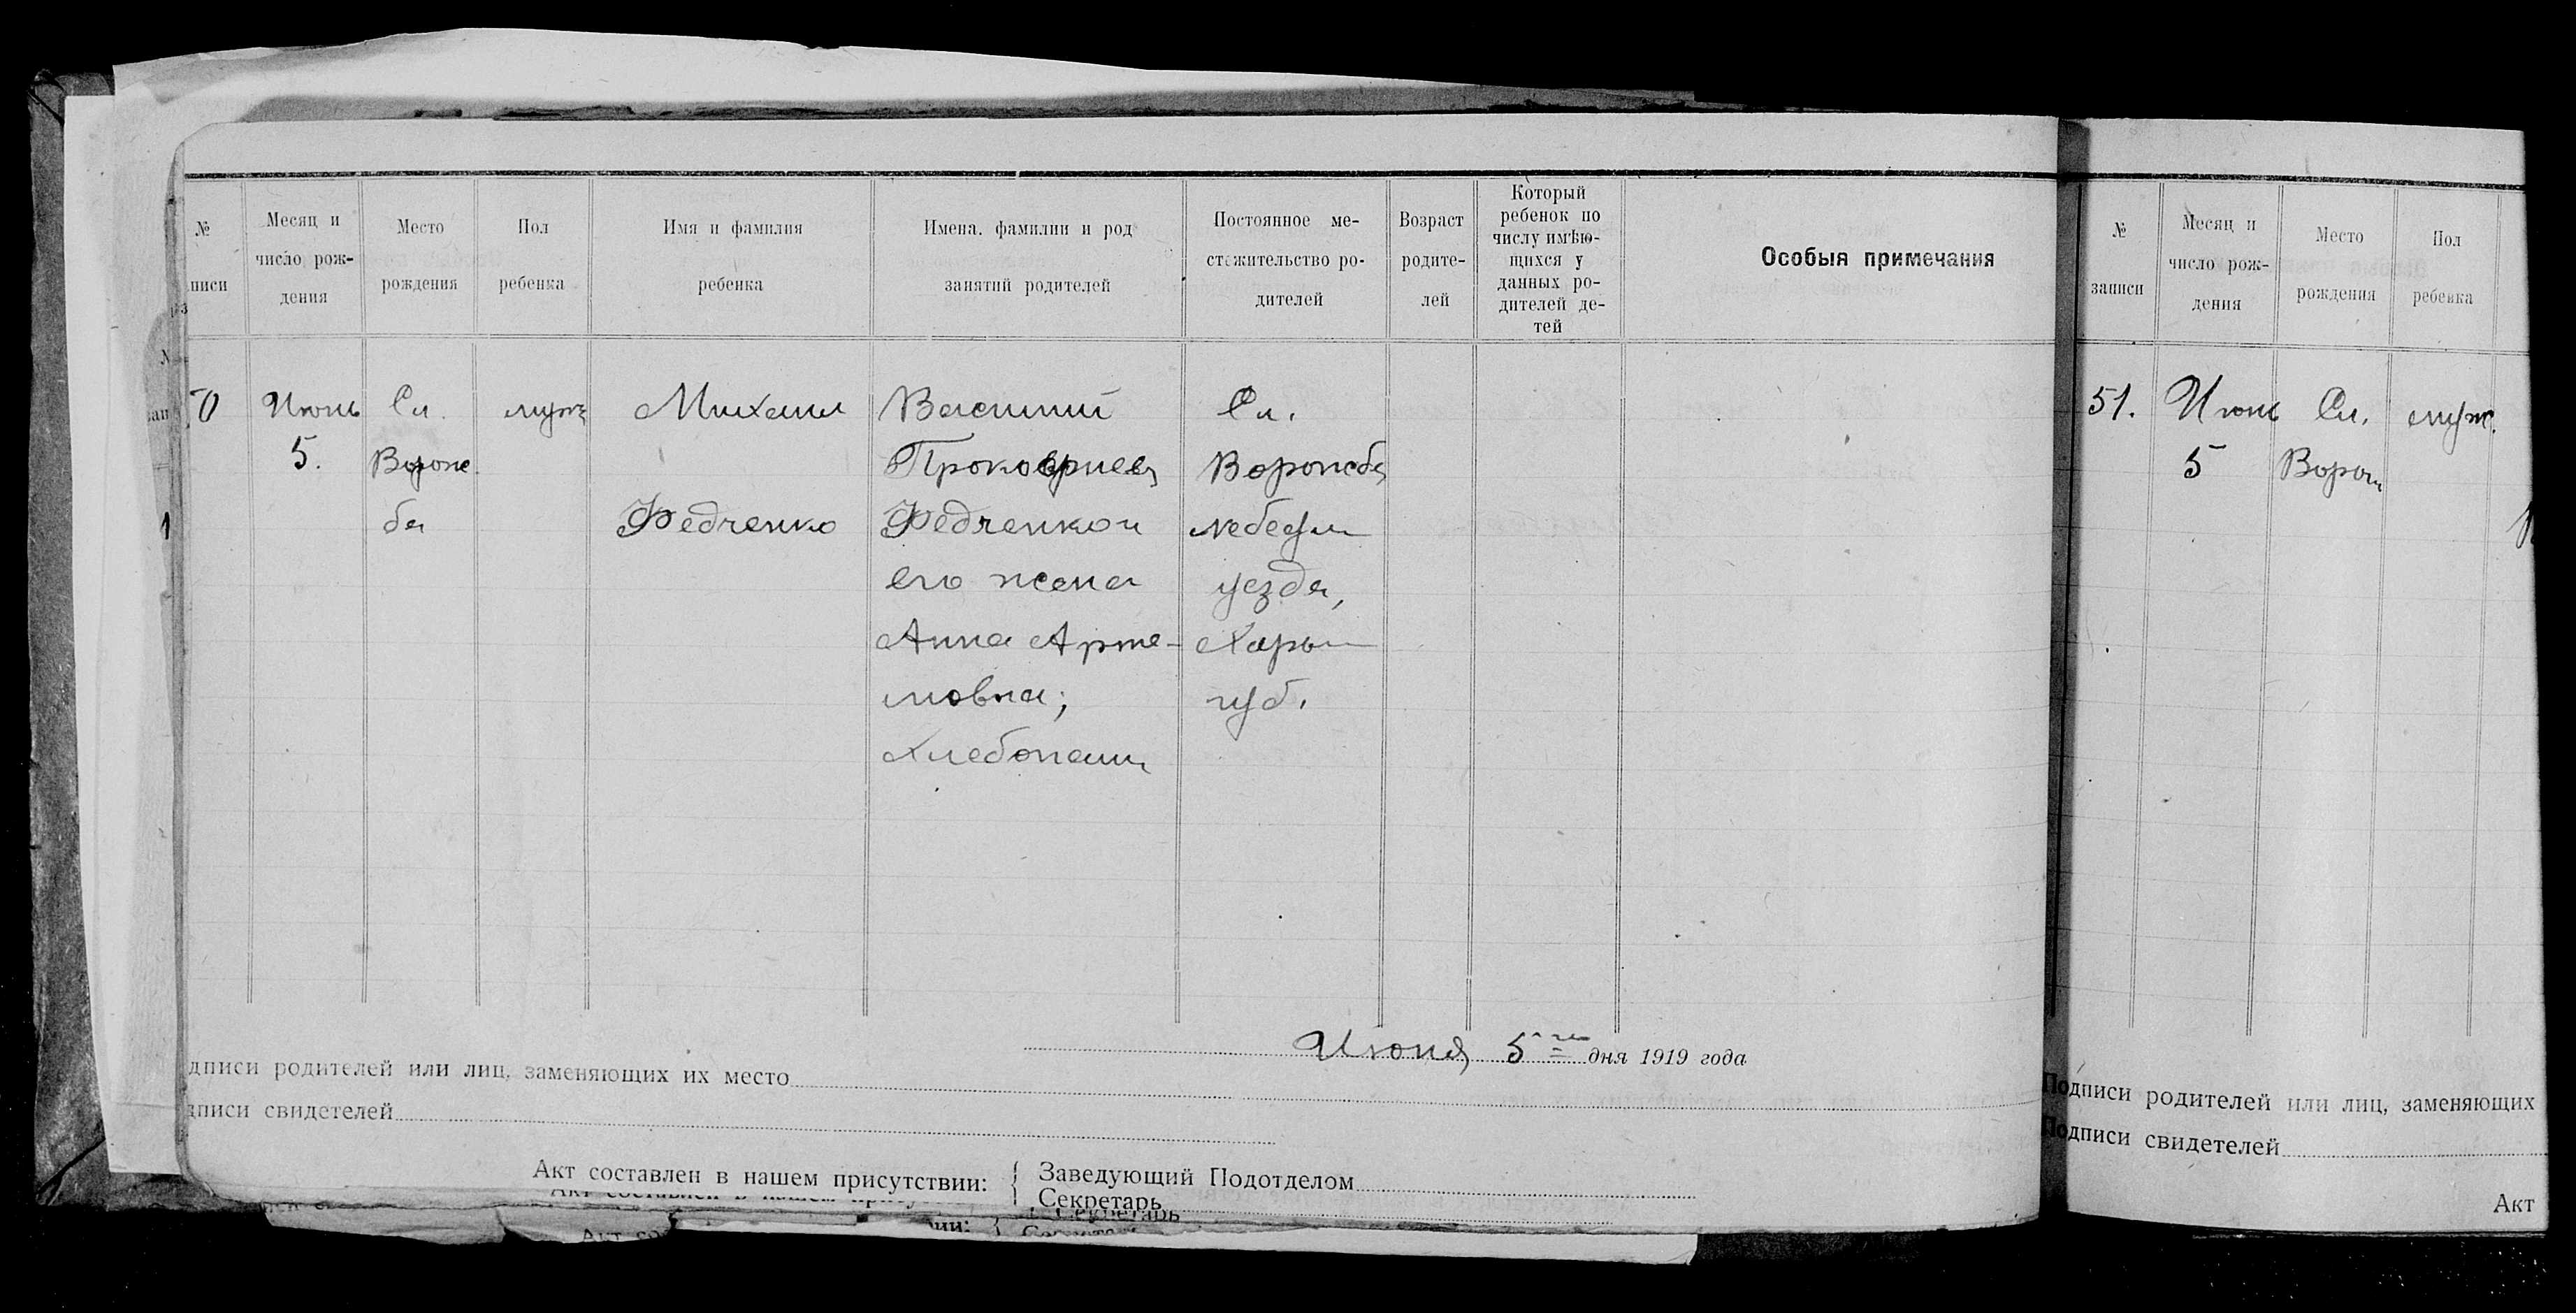 №
писи
Месяц и
число рож-
дения
Место
рождения
Пол
ребенка
Имя и фамилия
ребенка
Имена, фамилии и род
занятий родителей
Постоянное ме-
стожительство ро-
дителей
Возраст
родите-
лей
Который
ребенок по
числу имѣю-
щихся у
данных ро-
дителей де-
тей
Особыя примечания
0
Июнь
5.
Сл.
Ворож
ба
муж
Михаил
Федченко
Василий
Прокофиев
Федченко и
его жена
Анна Арте-
мовна;
Хлебопаш
Сл.
Ворожба
Лебедин
уезда,
Харьк
губ.
Июня 5го дня 1919 года
дписи родителей или лиц, заменяющих их место
дписи свидетелей
Акт составлен в нашем присутствии:
Заведующий Подотделом
Секретарь
Секретарь
№
записи
Месяц и
число рож-
дения
Место
рождения
Пол
ребенка
51.
Июнь
5
Сл.
Ворож
муж.
Подписи родителей или лиц, заменяющих
Подписи свидетелей
Акт